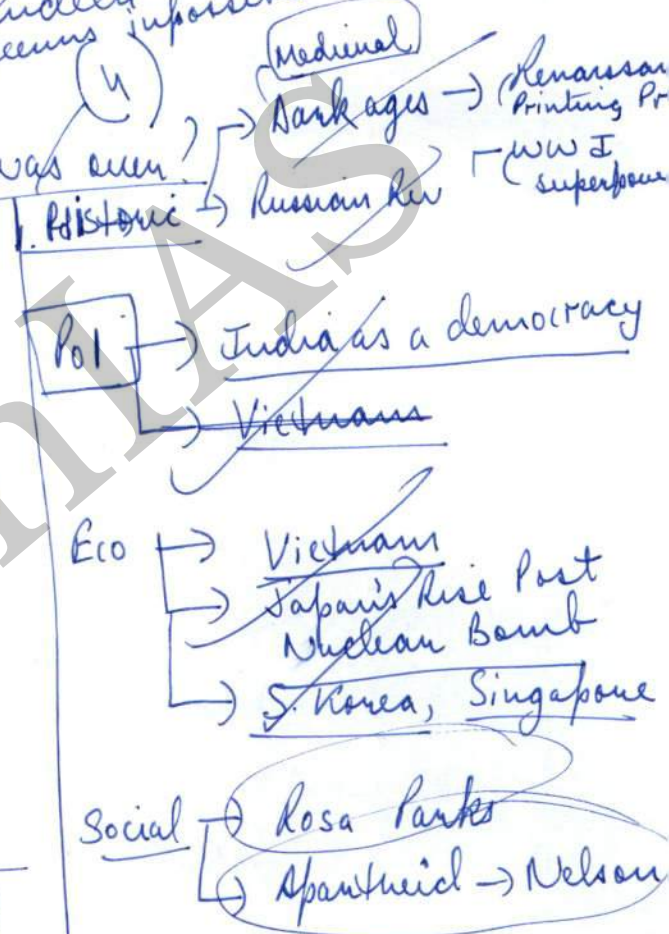 seems
(4)
Medieval
Dark ages → (Renaissan
Printing Pr
was even?
1. Historic → Russian Rev
WW I
superpow
Pol → India as a democracy
→ Vietnam
Eco → Vietnam
→ Japan's Rise Post
Nuclear Bomb
→ S. Korea, Singapore
Social → Rosa Parks
→ Apartheid → Nelson
IAS